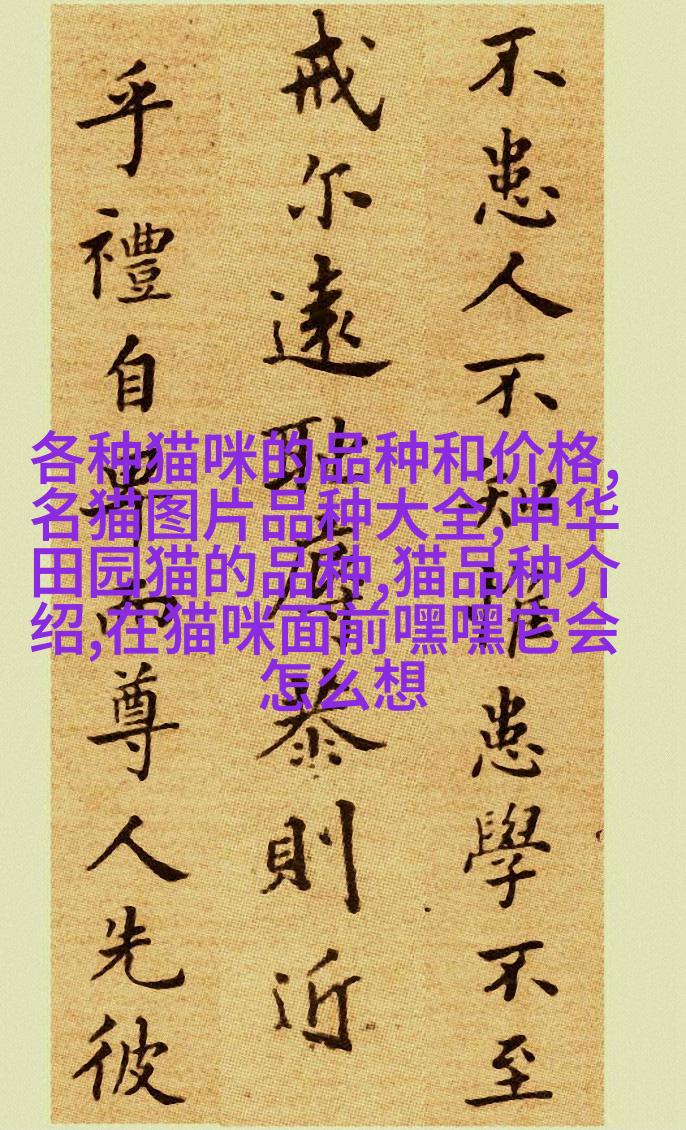 不患人不知惟患學不至
戒尔遠耻辱恭則近
乎禮自卑而尊人先彼
各种猫咪的品种和价格,
名猫图片品种大全,中华
田园猫的品种,猫品种介
绍,在猫咪面前嘿嘿它会
怎么想